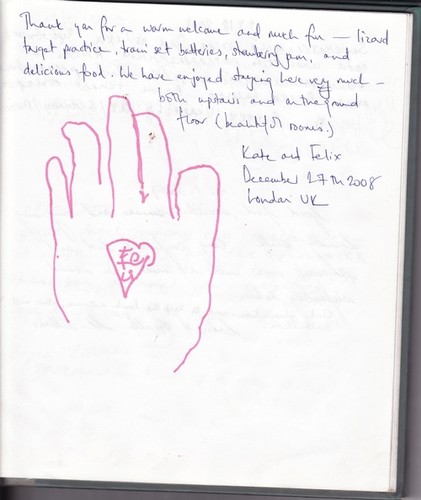 Thank you for a warm welcome and much fun – lizard
target practice, train set batteries, strawberry jam, and
delicious food. We have enjoyed staying here very much –
both upstairs and on the ground
floor (beautiful rooms.)
Kate and Felix
December 27th 2008
London UK